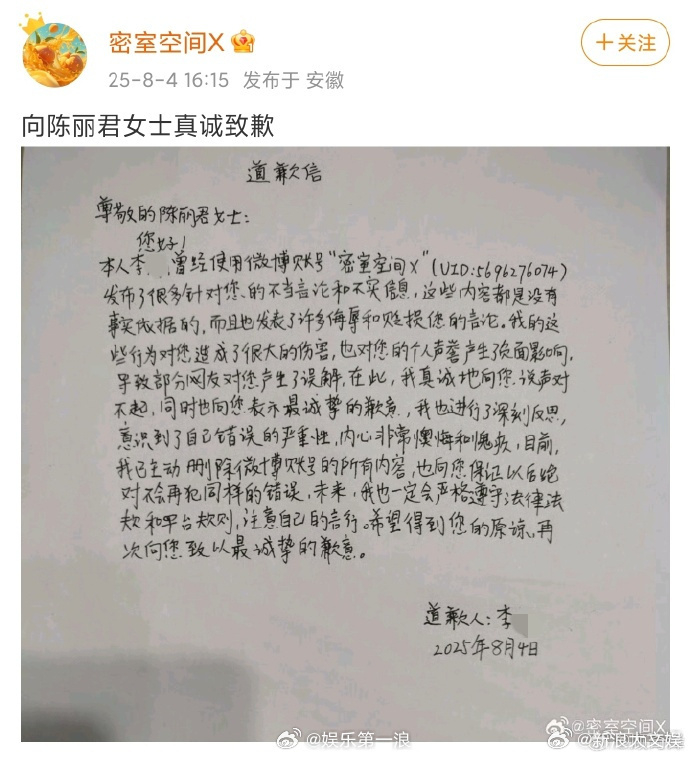 密室空间X
25-8-4 16:15 发布于 安徽
+关注
向陈丽君女士真诚致歉
道歉信
尊敬的陈丽君女士:
您好!
本人李 曾经使用微博账号"密室空间X"(UID:5696276074)
发布了很多针对您的不当言论和不实信息,这些内容都是没有
事实依据的,而且也发表了许多侮辱和贬损您的言论。我的这
些行为对您造成了很大的伤害,也对您的个人声誉产生了负面影响,
导致部分网友对您产生了误解,在此,我真诚地向您说声对
不起,同时也向您表示最诚挚的歉意,我也进行了深刻反思,
意识到了自己错误的严重性,内心非常懊悔和愧疚,目前,
我已主动删除微博账号的所有内容,也向您保证以后绝
对不会再犯同样的错误,未来,我也一定会严格遵守法律法
规和平台规则,注意自己的言行。希望得到您的原谅,再
次向您致以最诚挚的歉意。
道歉人:李
2025年8月4日
@密室空间X
@娱乐第一浪
@新浪大文娱